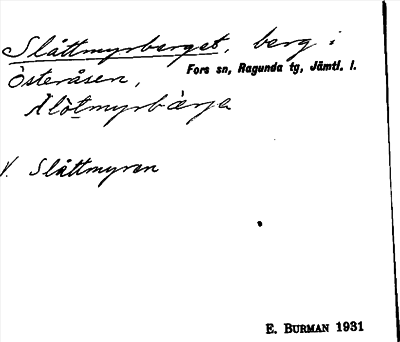 Slåttmyrberget, berg i
Österåsen, Fors sn, Ragunda tg, Jämtl. l.
V. Slåttmyren
E. BURMAN 1931